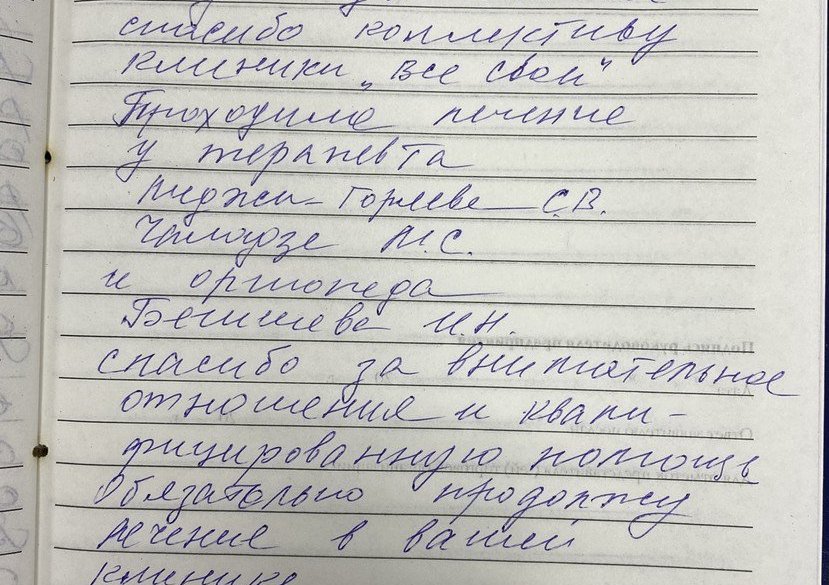 спасибо коллективу
клиники „Все свои"
Проходила лечение
у терапевта
Горяева С.В.
Чиладзе М.С.
и ортопеда
Бегишева И.Н.
спасибо за внимательное
отношения и квали-
фицированную помощь
Обязательно продолжу
лечение в вашей
клинике